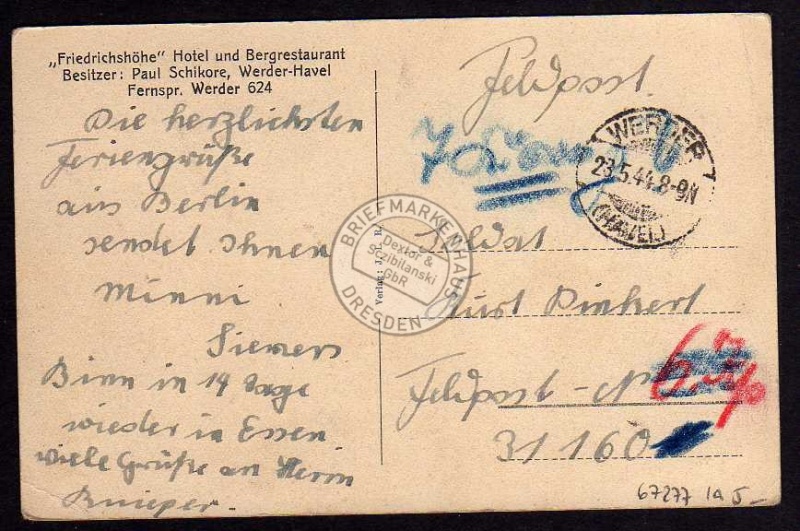 „Friedrichshöhe" Hotel und Bergrestaurant
Besitzer: Paul Schikore, Werder-Havel
Fernspr. Werder 624
Die herzlichsten
Feriengrüße
aus Berlin
sendet Ihnen
Minni
Siemers
Binn in 14 Tage
wieder in Essen.
viele Grüße an Herrn
Knieper.
Feldpost.
WERDER
23.5.44.8-9N
(HAVEL)
Soldat
Kurt Pinkert
Feldpost-N
31160
BRIEFMARKENHAUS
Dextor &
Sczibilanski
GbR
DRESDEN
67277 1a 5-